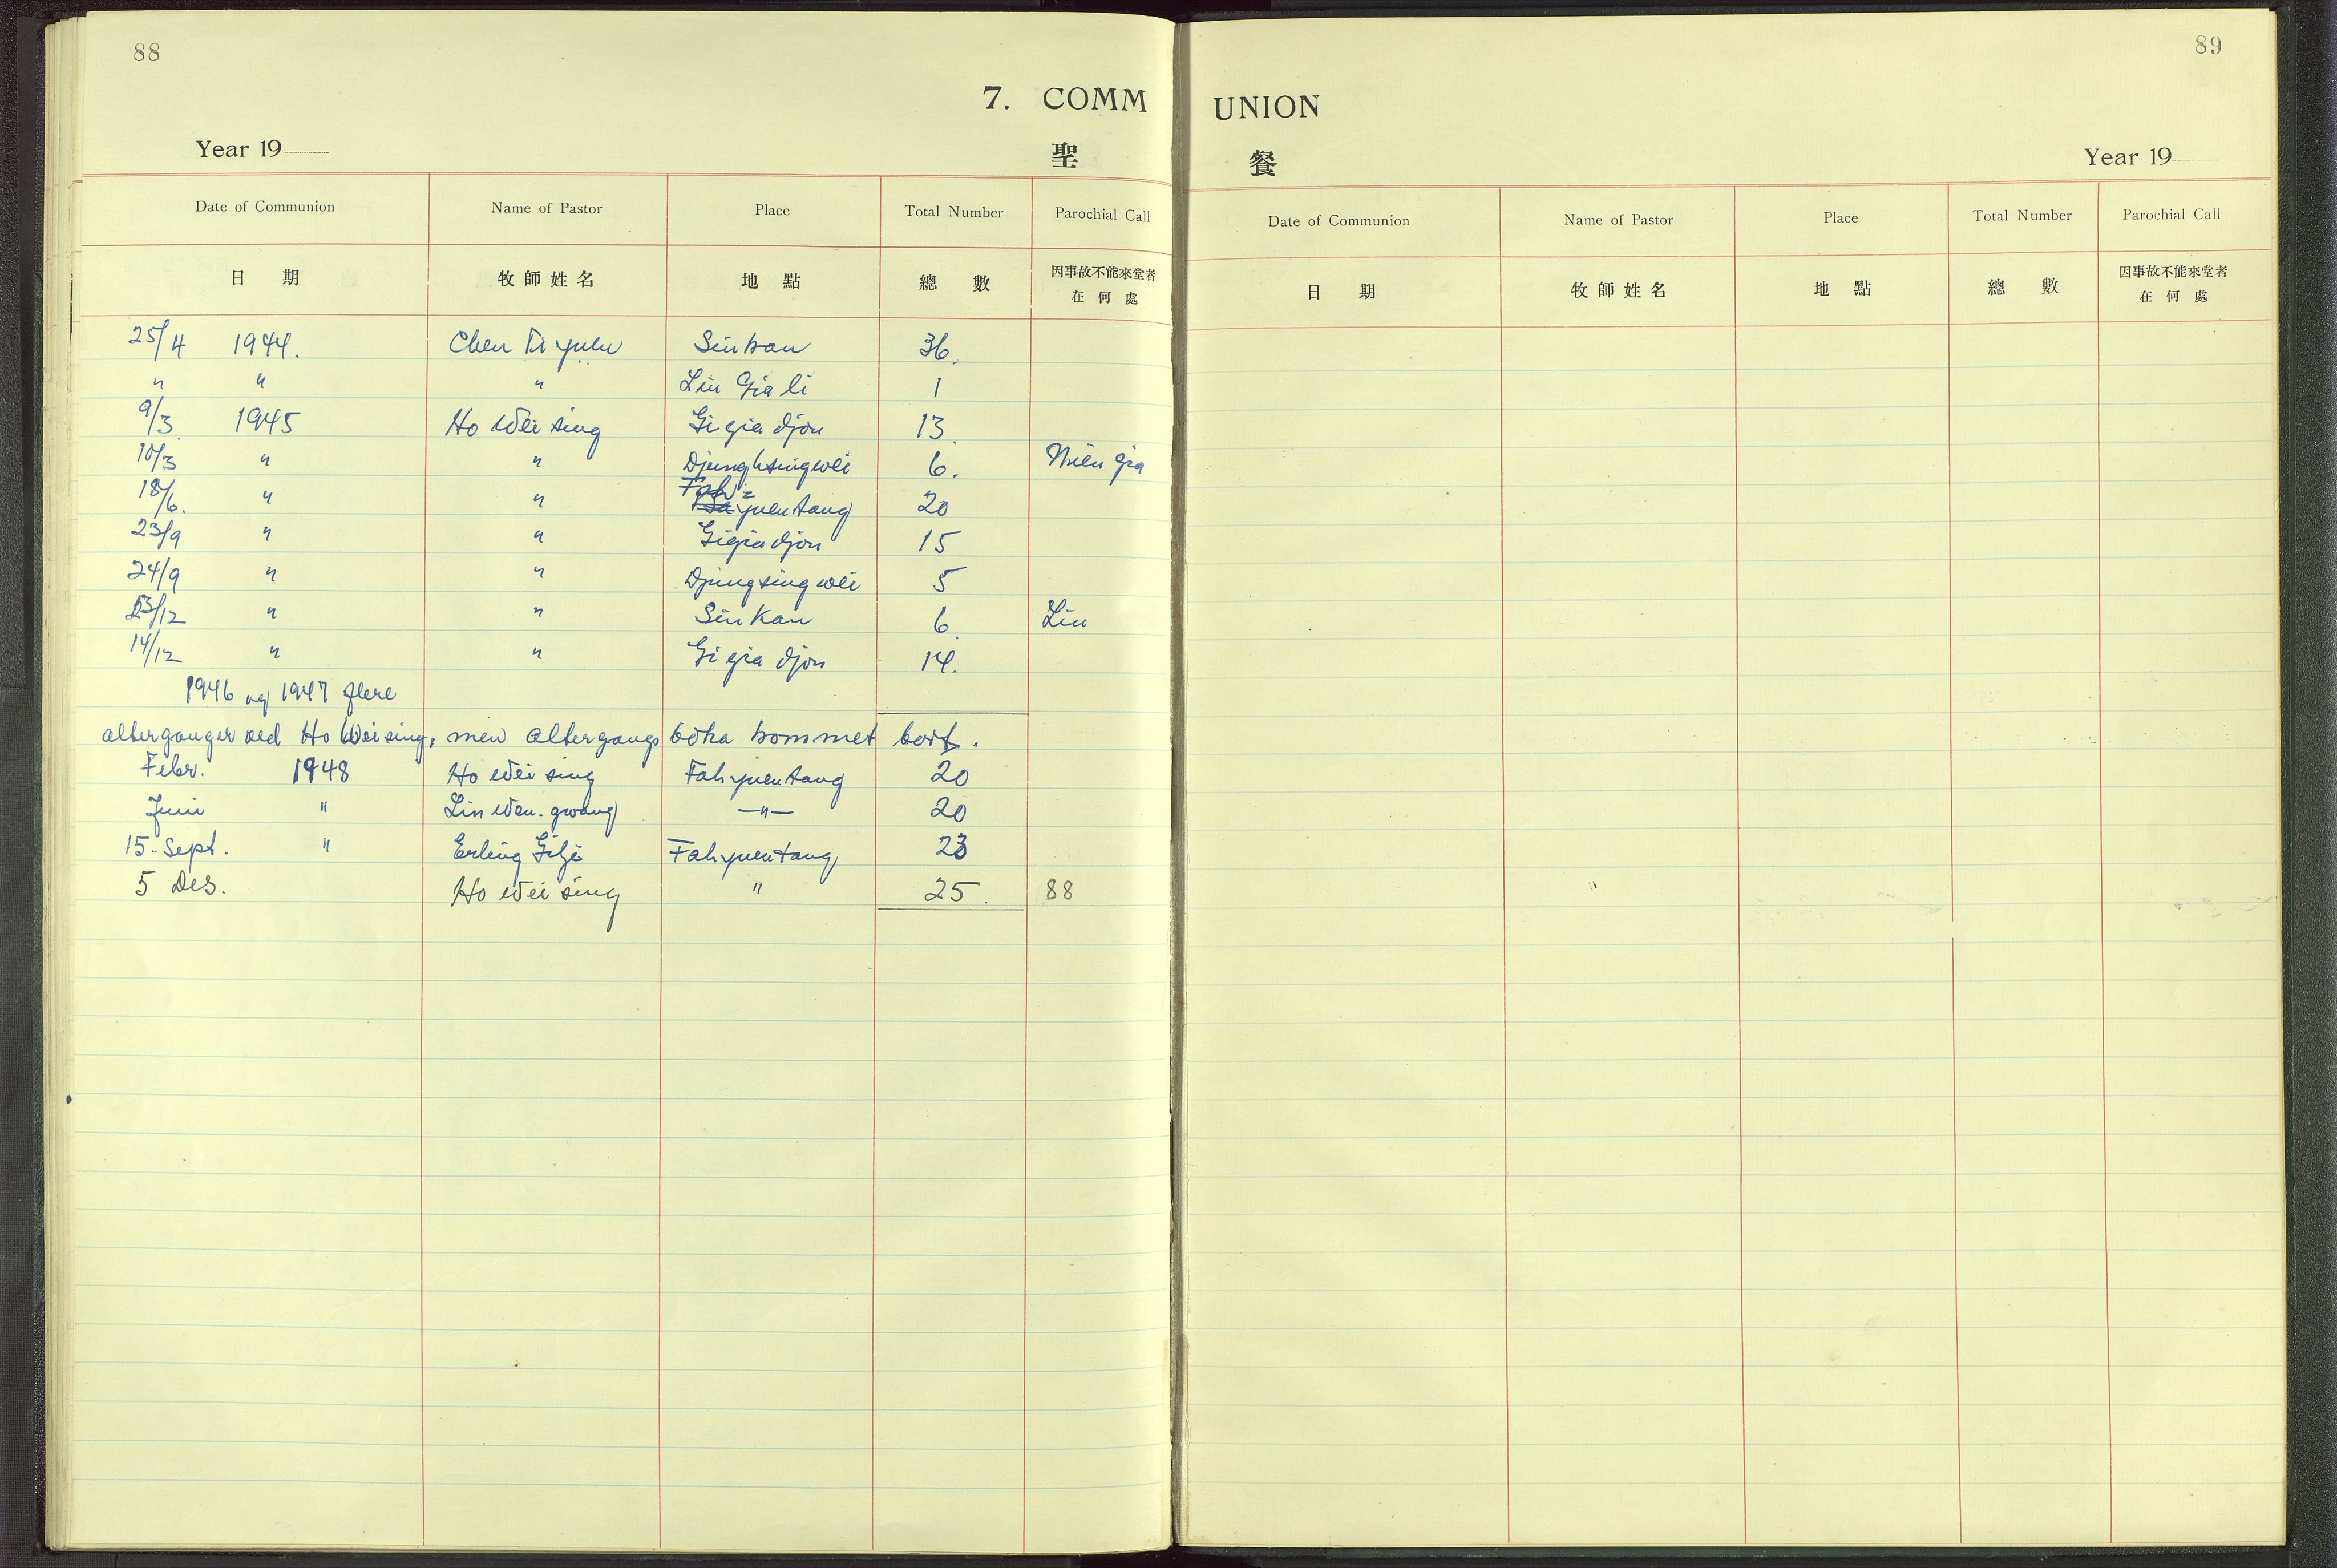 88
7. COMM
Year 19
聖
Date of Communion Name of Pastor Place Total Number Parochial Call
日 期 牧師姓名 地 點 總 數 因事故不能來堂者
在 何 處
25/4 1944. Chen Ti Yuen Sinkan 36.
" " " Liu Gia li 1
9/3. 1945 Ho Wei sing Gi gia djon 13.
10/3 " " Djunghsingwei 6. Nieu gia
18/6. " " Fah= yuentang 20
23/9 " " Gigia djon 15
24/9 " " Djungsingwei 5
13/12 " " Sinkan 6. Liu
14/12 " " Gi gia djon 14.
1946 og 1947 flere
alterganger ved Ho Wei sing, men altergangsboka kommet bort.
Febr. 1948 Ho Wei sing Fahyuentang 20
Juni " Lin Wen. gwang —"— 20
15. Sept. " Erling Gilje Fahyuentang 23
5 Des. Ho Wei sing " 25. 88
89
UNION
餐
Year 19
Date of Communion Name of Pastor Place Total Number Parochial Call
日 期 牧師姓名 地 點 總 數 因事故不能來堂者
在 何 處